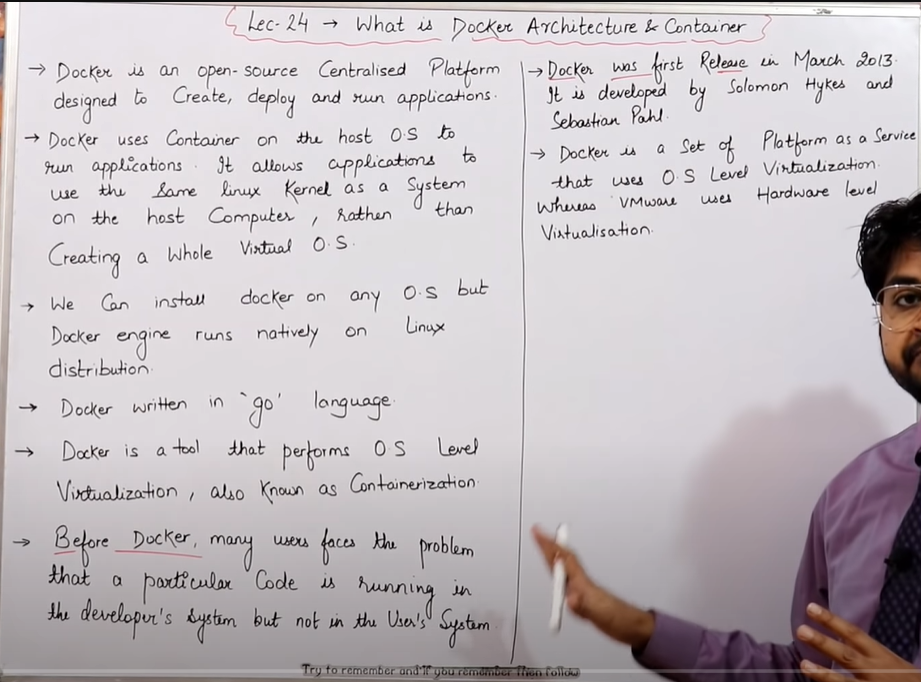 Lec-24 → What is Docker Architecture & Container
→ Docker is an open-source Centralised Platform
designed to Create, deploy and run applications.
→ Docker uses Container on the host O.S to
run applications. It allows applications to
use the same linux Kernel as a System
on the host Computer, rather than
Creating a Whole Virtual O.S.
→ We Can install docker on any O.S but
Docker engine runs natively on Linux
distribution.
→ Docker written in 'go' language.
→ Docker is a tool that performs OS Level
Virtualization, also Known as Containerization.
→ Before Docker, many users faces the problem
that a particular Code is running in
the developer's system but not in the User's System.
→ Docker was first Release in March 2013.
It is developed by Solomon Hykes and
Sebastian Pahl.
→ Docker is a Set of Platform as a Service
that uses O.S Level Virtualization.
Whereas VMware uses Hardware level
Virtualisation.
Try to remember and if you remember Then follow